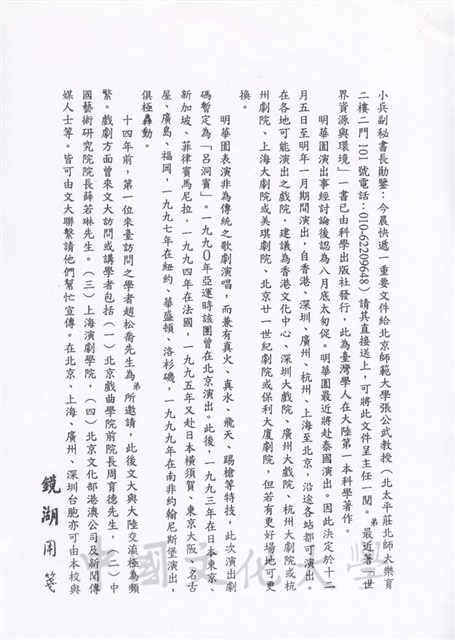 小兵副秘書長勛鑒：今晨快遞一重要文件給北京師範大學張公武教授（北太平莊北師大樂育
二樓二門101號電話：010-62209648）請其直接送上，可將此文件呈主任一閱。弟最近著「世
界資源與環境」一書已由科學出版社發行，此為臺灣學人在大陸第一本科學著作。
明華園演出事經討論後認為八月底太匆促。明華園最近將赴泰國演出。因此決定於十二
月五日至明年一月期間演出，自香港、深圳、廣州、杭州、上海至北京，沿途各站都可演出。
在各地可能演出之戲院，建議為香港文化中心、深圳大戲院、廣州大戲院、杭州大劇院或杭
州劇院、上海大劇院或美琪劇院、北京廿一世紀劇院或保利大廈劇院，但若有更好場地可更
換。
明華園表演非為傳統之歌劇演唱，而兼有真火、真水、飛天、踢槍等特技，此次演出劇
碼暫定為「呂洞賓」。一九九〇年亞運時該團曾在北京演出。此後，一九九三年在日本東京、
新加坡、菲律賓馬尼拉，一九九四年在法國，一九九五年又赴日本橫須賀、東京大阪、名古
屋、廣島、福岡，一九九七年在紐約、華盛頓、洛杉磯，一九九九年在南非約翰尼斯堡演出，
俱極轟動。
十四年前，第一位來臺訪問之學者趙松喬先生為弟所邀請，此後文大與大陸交流極為頻
繁。戲劇方面曾來文大訪問或講學者包括（一）北京戲曲學院前院長周育德先生，（二）中
國藝術研究院院長薛若琳先生。（三）上海演劇學院，（四）北京文化部港澳公司及新聞傳
媒人士等。皆可由文大聯繫請他們幫忙宣傳。在北京、上海、廣州、深圳台胞亦可由本校與
鏡湖用箋
中國文化大學